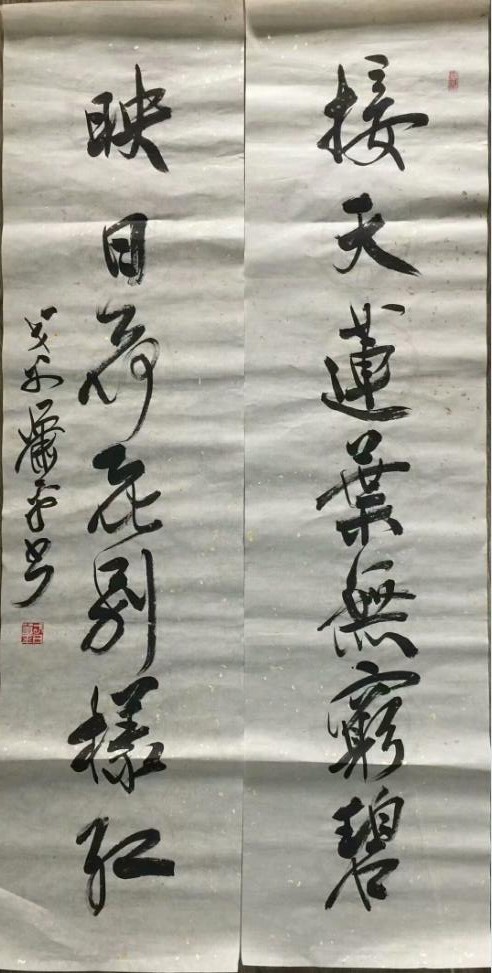 接天蓮葉無窮碧
映日荷花別樣紅